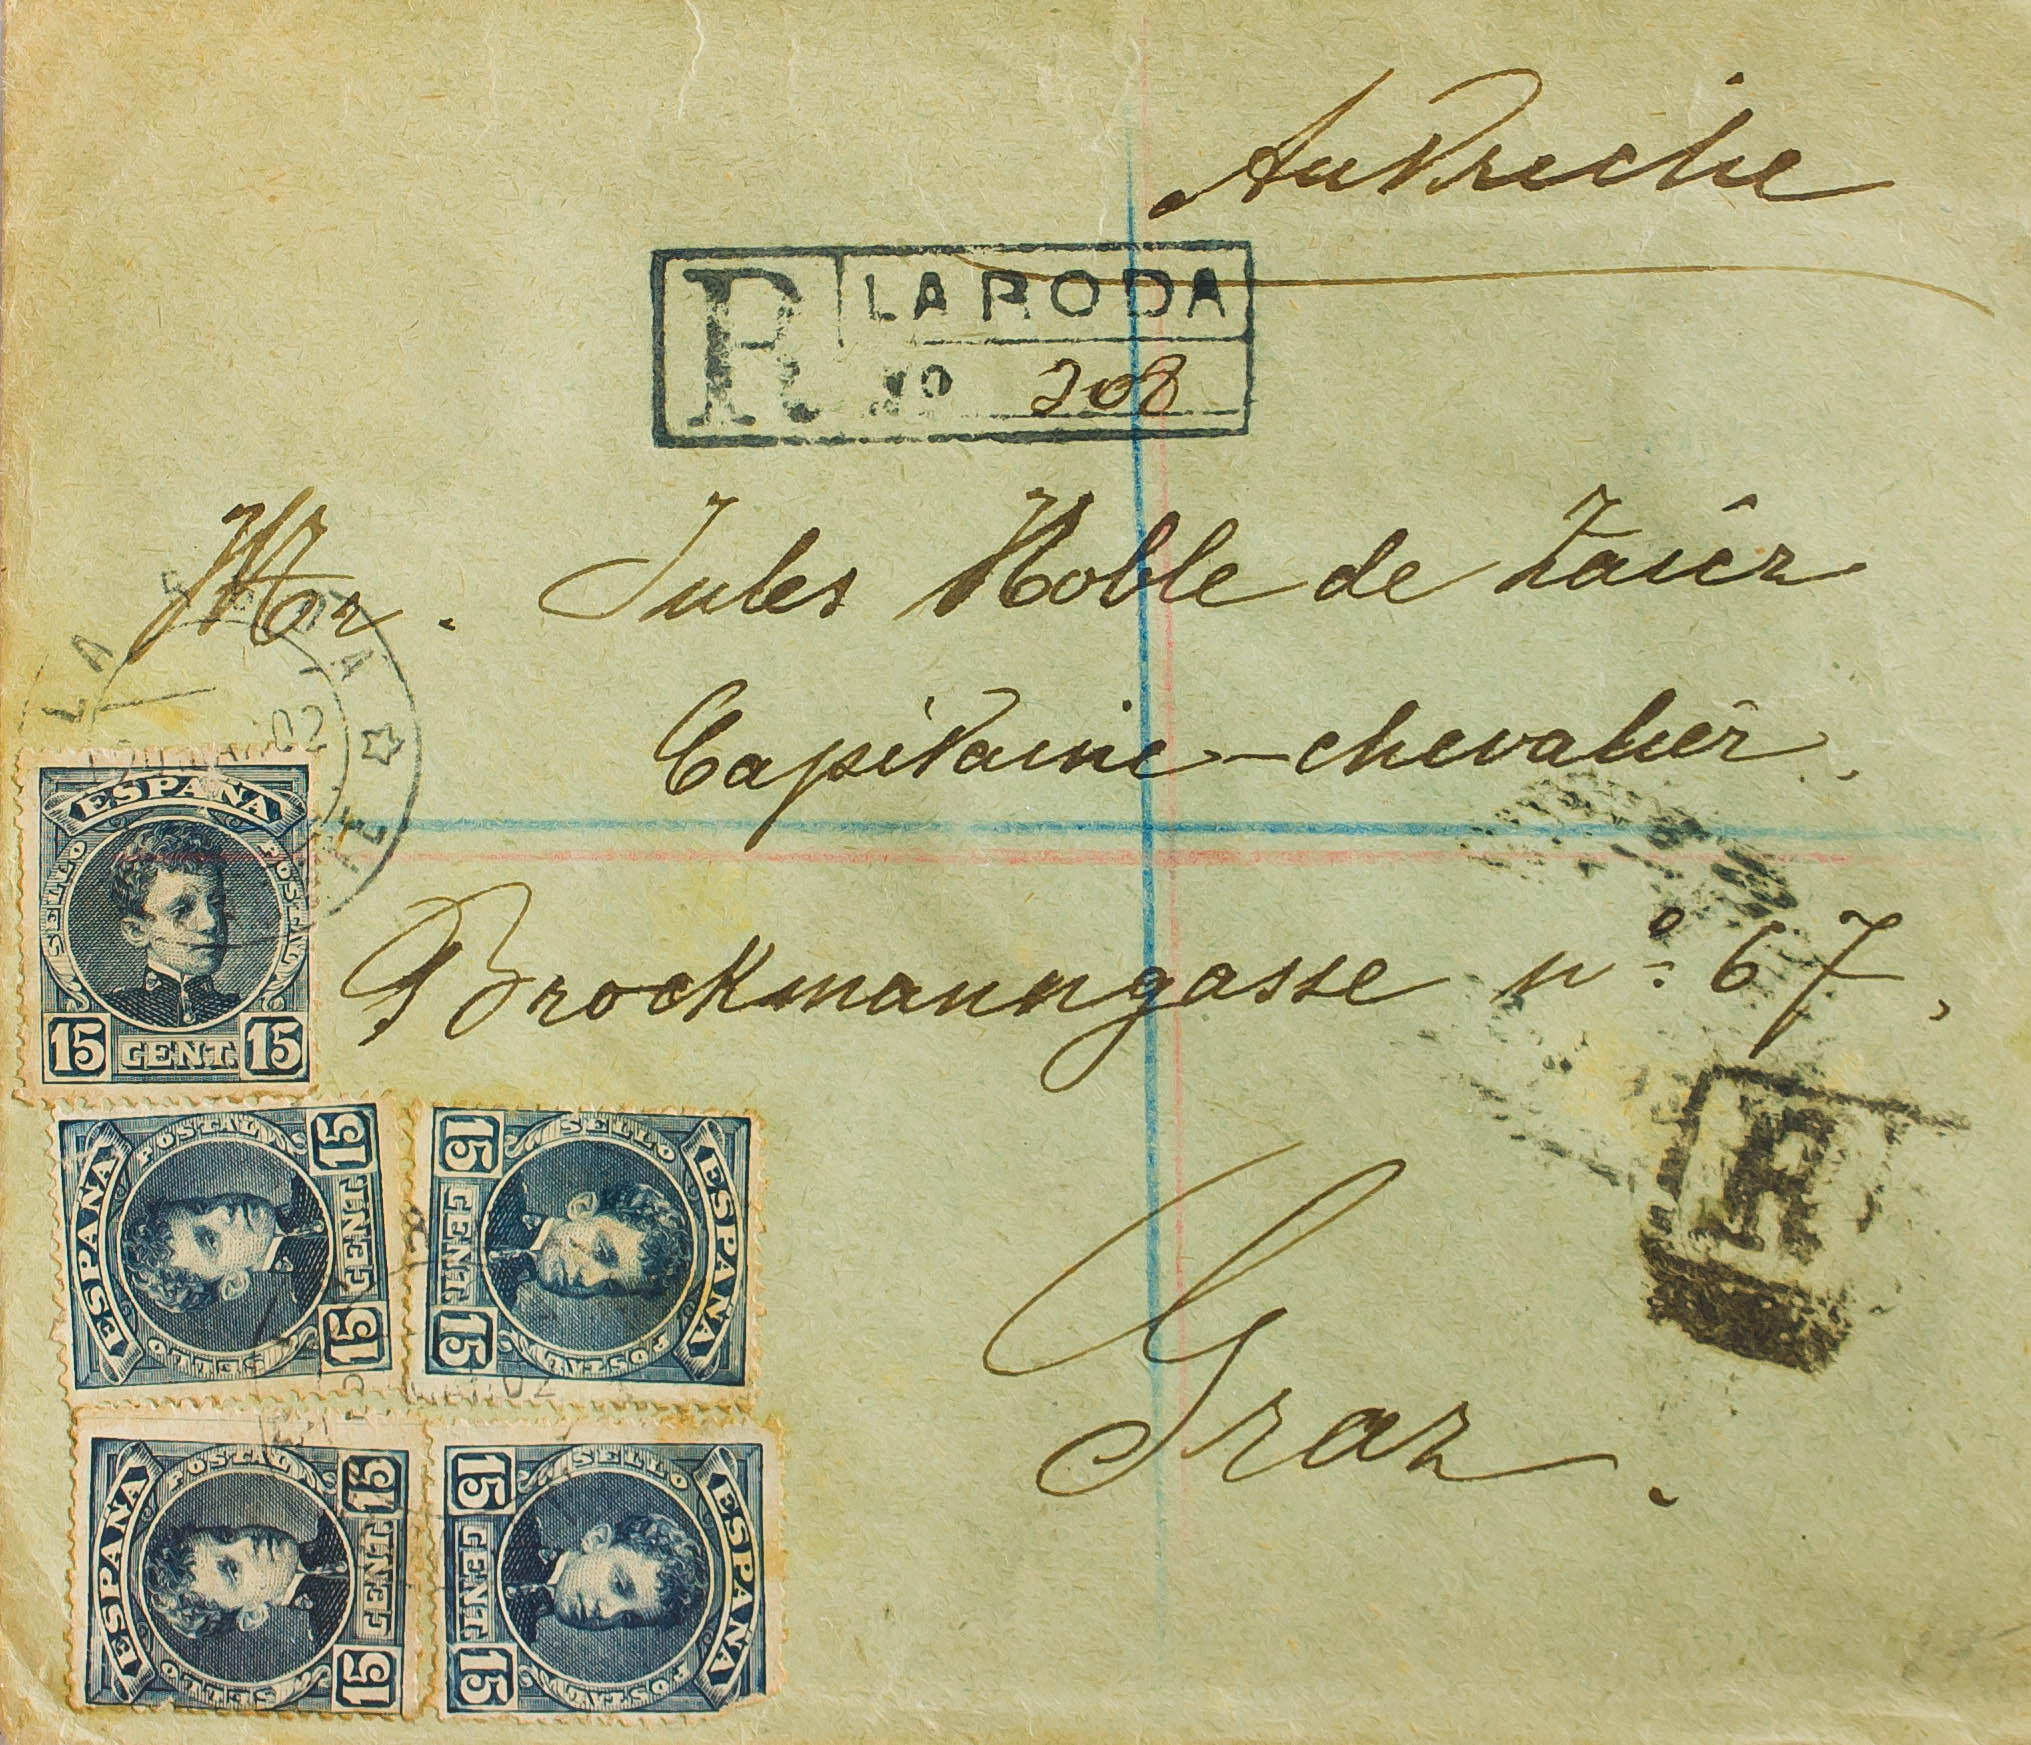 Autriche
R LA RODA
No 208
Mr. Jules Noble de Zaiêz
Capitaine-chevalier.
Brockmanngasse nº 67,
Graz.
R
LA
02
ESPAÑA
SELLO POSTAL
15 CENT. 15
ESPAÑA
SELLO POSTAL
15 CENT. 15
ESPAÑA
SELLO POSTAL
15 CENT. 15
ESPAÑA
SELLO POSTAL
15 CENT. 15
ESPAÑA
SELLO POSTAL
15 CENT. 15